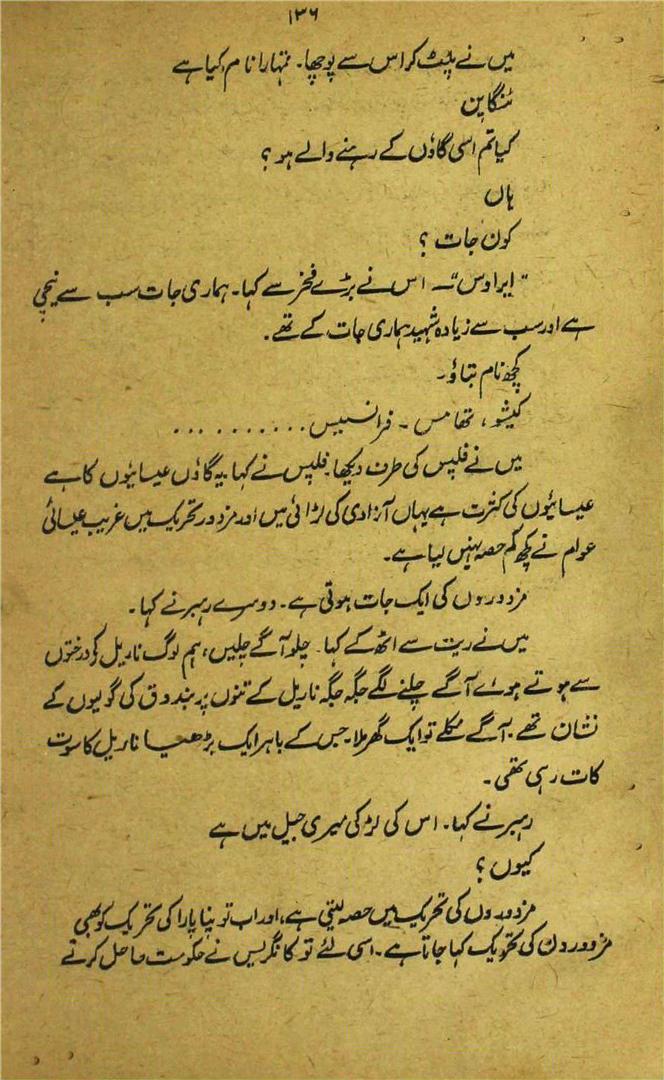 ۱۳۶
میں نے پلٹ کر اس سے پوچھا۔ تمہارا نام کیا ہے
سُنگاین
کیا تم اسی گاؤں کے رہنے والے ہو ؟
ہاں
کون جات ؟
"ایراوس"۔ اس نے بڑے فخر سے کہا۔ ہماری جات سب سے نیچی
ہے اور سب سے زیادہ شہید ہماری جات کے تھے۔
کچھ نام بتاؤ۔
کیشو، تھامس ۔ فرانسیس ...........
میں نے فلپس کی طرف دیکھا۔ فلپس نے کہا یہ گاؤں عیسائیوں کا ہے
عیسائیوں کی کثرت ہے یہاں آزادی کی لڑائی میں اور مزدور تحریک میں غریب عیسائی
عوام نے کچھ کم حصہ نہیں لیا ہے۔
مزدوروں کی ایک جات ہوتی ہے۔ دوسرے رہبر نے کہا۔
میں نے ریت سے اٹھ کے کہا۔ چلو آگے چلیں، ہم لوگ ناریل کے درختوں
سے ہوتے ہوئے آگے چلنے لگے جگہ جگہ ناریل کے تنوں پر بندوق کی گولیوں کے
نشان تھے۔ آگے نکلے تو ایک گھر ملا۔ جس کے باہر ایک بڑھیا ناریل کا سوت
کات رہی تھی۔
رہبر نے کہا۔ اس کی لڑکی میری جیل میں ہے
کیوں ؟
مزدوروں کی تحریک میں حصہ لیتی ہے، اور اب تو پنا پارا کی تحریک کو بھی
مزدوروں کی تحریک کہا جاتا ہے۔ اسی لئے تو کانگریس نے حکومت حاصل کرتے